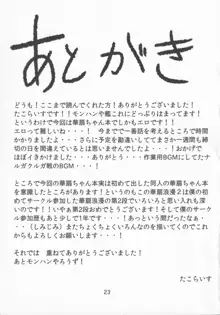 あとがき
どうも!ここまで読んでくれた方!ありがとうございました!
たこらいすです!モンハンや艦これにどっぷりはまってます!
というわけで今回は華扇ちゃん本でしかもエロです!
エロって難しいね・・・!今までで一番話を考えるところで時間
かかりましたよ・・・さらに予定が勘違いしててまさか一週間も締
切日の間を間違えているとは思いませんでしたよ・・・おかげで
はぼイきかけました・・・ありがとう・・・作業用BGMにしてたナ
ルガクルガ戦のBGM・・・
ところで今回の華扇ちゃん本実は初めて出した同人の華扇本
を意識したところがあります!なので華扇浪漫2は僕の初め
てのサークル参加の第2段でいろいろと思い入れも深
いのです!いやぁ第2段おめでとうございます!そして僕のサーク
ル参加歴もあと少しで1年です・・・あっという間だったなぁ
・・・(しみじみ)またちょくちょくいろんなの描いてくのでこれ
からもよろしくお願いします・・・!
それでは 重ねてありがとうございました!
あとモンハンやろうず!
たこらいす
23